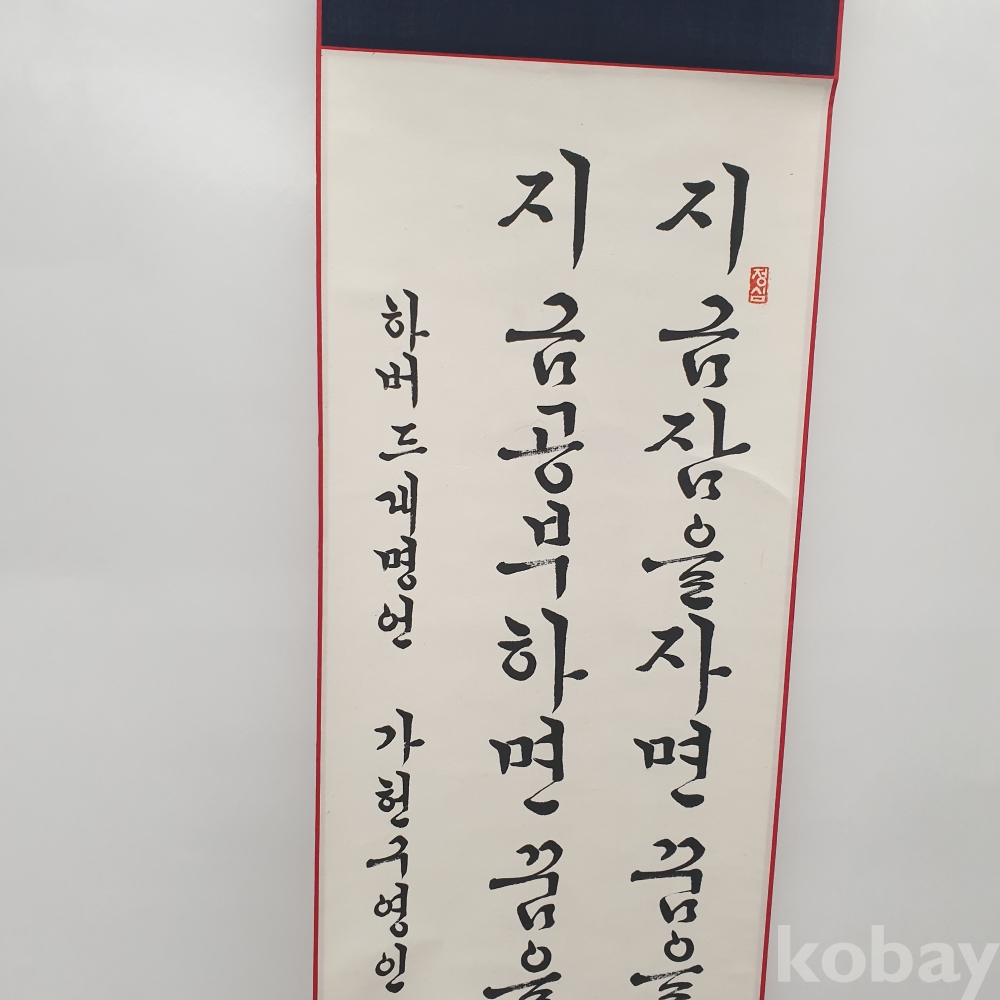 지금잠을자면꿈을
지금공부하면꿈을
하버드괘명언 가헌구영인
정심
kobay